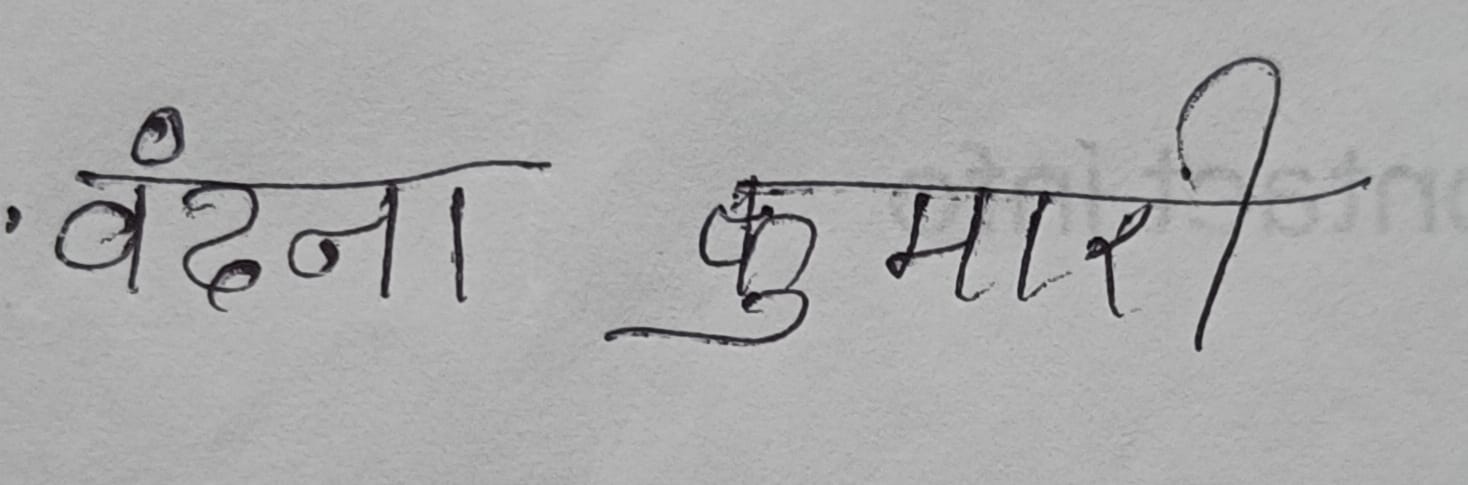 वंदना कुमारी